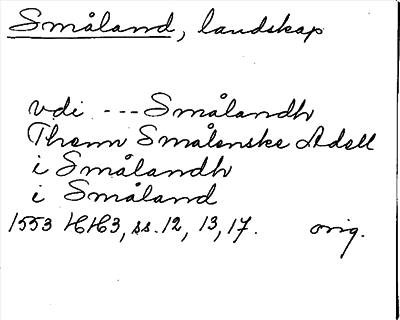 Småland, landskap
vdi --- Smålandh
Thenn Smalenske Adell
i Smålandh
i Småland
1553 HH3, ss. 12, 13, 17. orig.